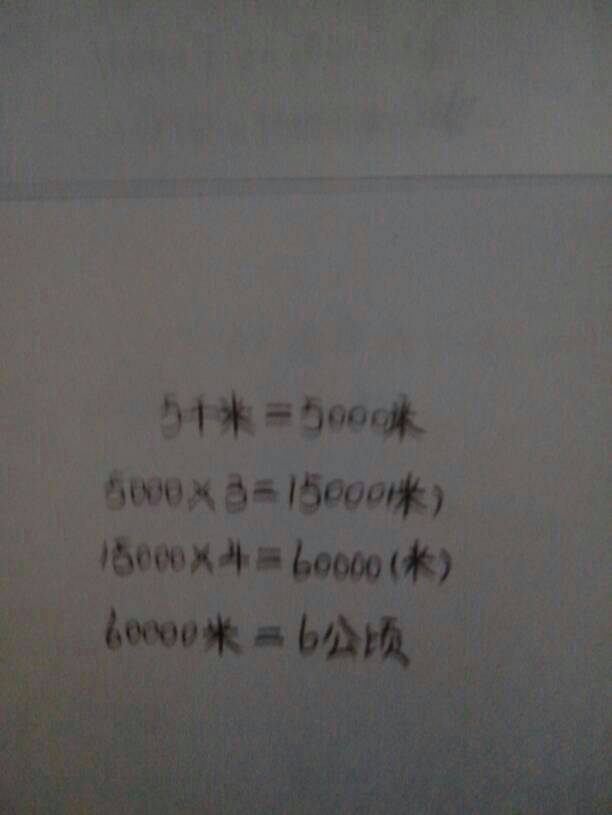 5千米=5000米
5000×3=15000(米)
15000×4=60000(米)
60000米=6公顷